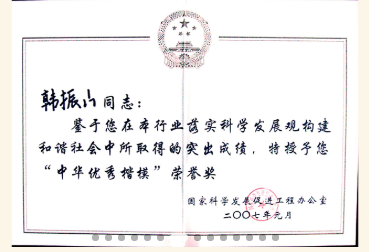 韩振山同志：
鉴于您在本行业落实科学发展观构建
和谐社会中所取得的突出成绩，特授予您
“中华优秀楷模”荣誉奖
国家科学发展促进工程办公室
二〇〇七年元月